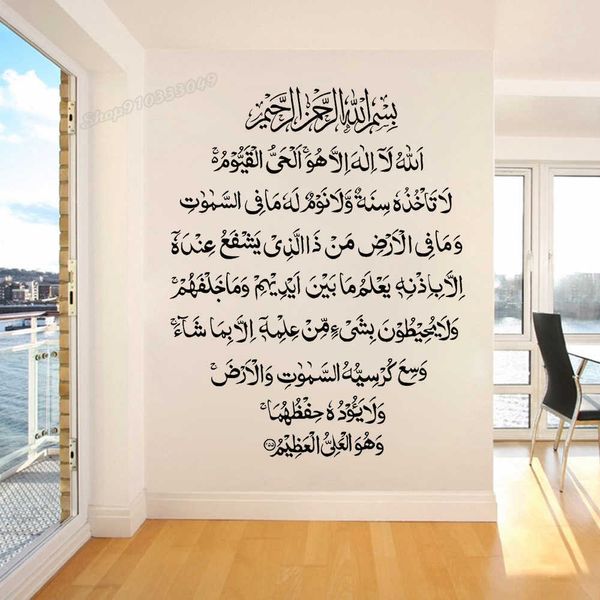 Shop910333049
بِسْمِ اللهِ الرَّحْمٰنِ الرَّحِيْمِ
اَللهُ لَآ اِلٰهَ اِلَّا هُوَ ۚ اَلْحَیُّ الْقَيُّوْمُ ۚ
لَا تَاْخُذُهٗ سِنَةٌ وَّلَا نَوْمٌ لَهٗ مَا فِی السَّمٰوٰتِ
وَمَا فِی الْاَرْضِ مَنْ ذَا الَّذِیْ يَشْفَعُ عِنْدَهٗ
اِلَّا بِاِذْنِهٖ يَعْلَمُ مَا بَيْنَ اَيْدِيْهِمْ وَمَا خَلْفَهُمْ ۚ
وَلَا يُحِيْطُوْنَ بِشَیْءٍ مِّنْ عِلْمِهٖٓ اِلَّا بِمَا شَآءَ ۚ
وَسِعَ كُرْسِيُّهُ السَّمٰوٰتِ وَالْاَرْضَ ۚ
وَلَا يَؤُدُهٗ حِفْظُهُمَا ۚ
وَهُوَ الْعَلِیُّ الْعَظِيْمُ ۝٢٥٥